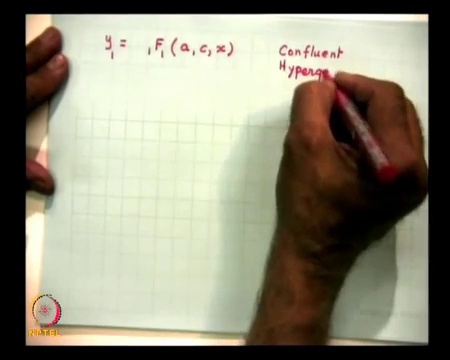 y₁ = ₁F₁ (a, c, x)
Confluent
Hyperge
NPTEL